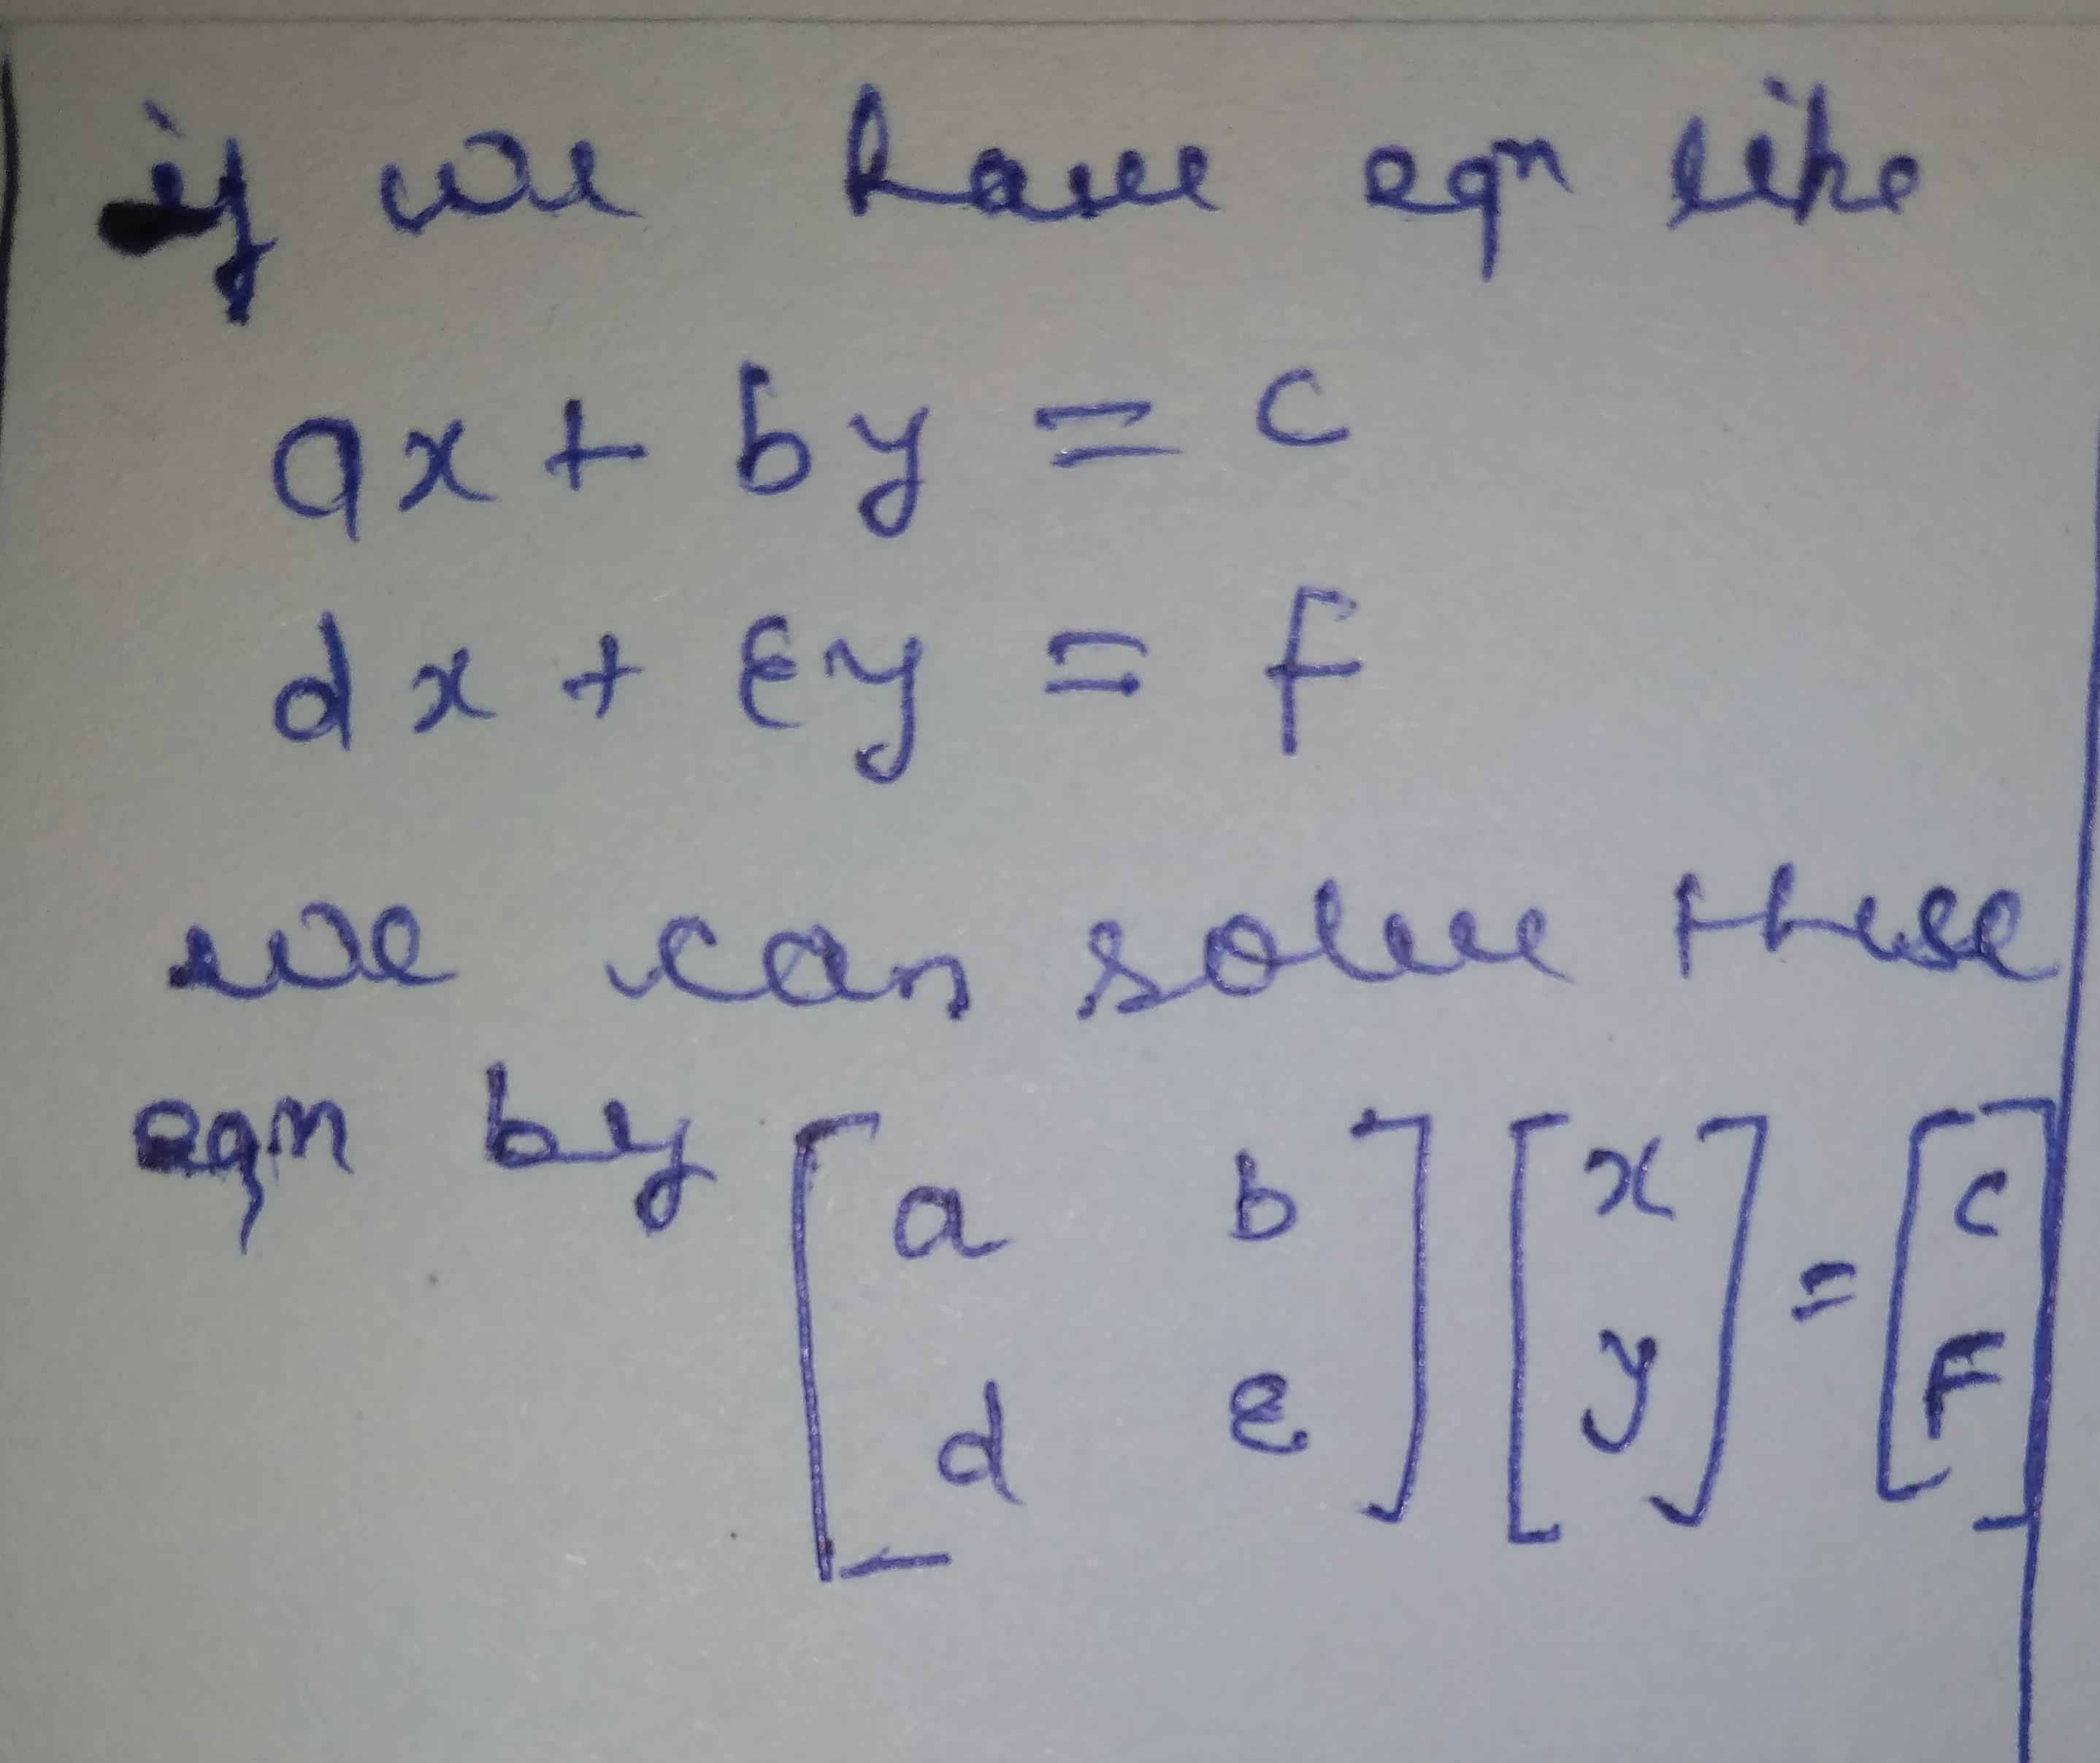 if we have eqn like
ax + by = c
dx + Ey = f
we can solve these
eqn by [a b] [x] = [c]
[d E] [y] [F]